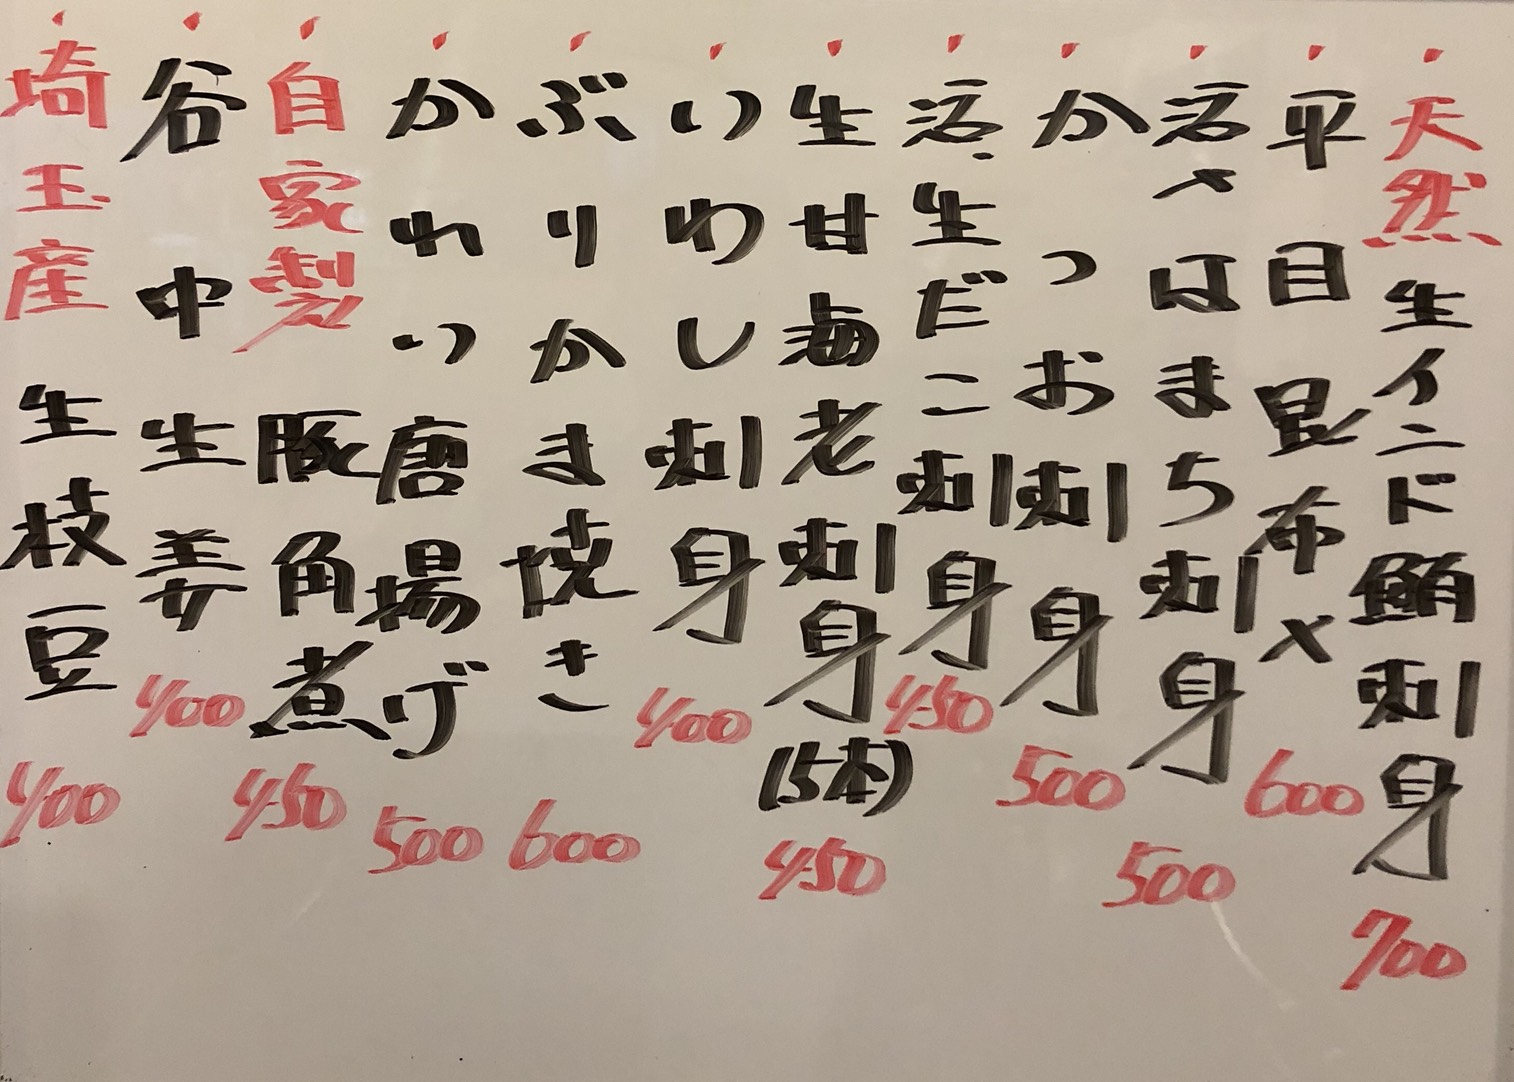 天然生インド鮪刺身 700
平目昆布〆 600
活〆はまち刺身 500
かつお刺身 500
活、生だこ刺身 450
生甘海老刺身(5本) 450
いわし刺身 400
ぶりかま焼き 600
かれい唐揚げ 500
自家製豚角煮 450
谷中生姜 400
埼玉産生枝豆 400